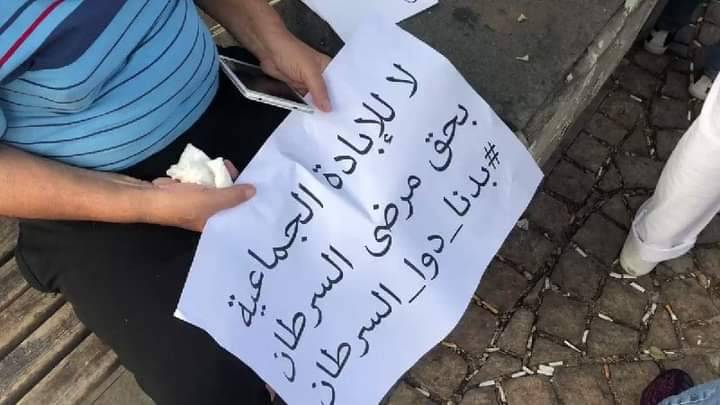 لا للإبادة الجماعية
بحق مرضى السرطان
#بدنا_دوا_السرطان